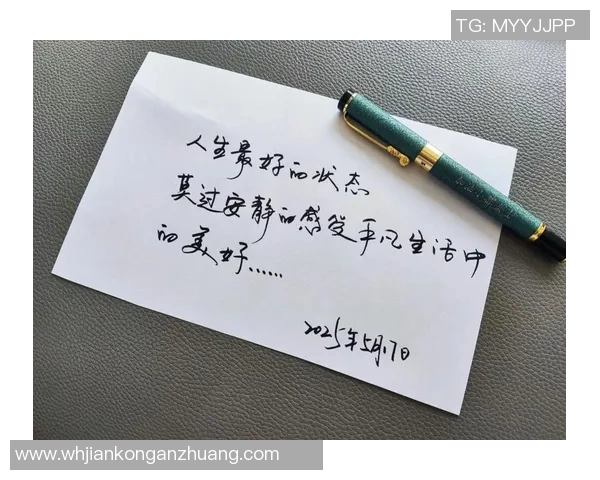 TG: MYYJJPP
人生最好的状态
莫过安静的感受平凡生活中
的美好……
2025年5月17日
www.whjiankonganzhuang.com